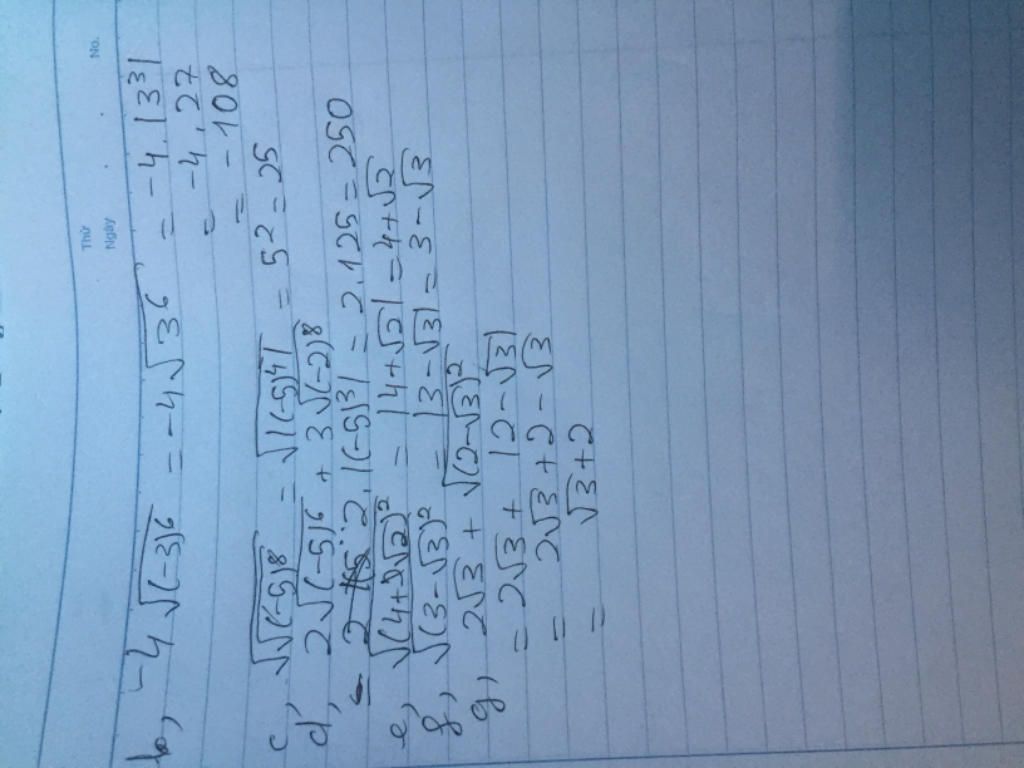 Thứ
Ngày
No.
b, -4√(-3)⁶ = -4√3⁶ = -4.|3³|
= -4.27
= -108
c, √√(-5)⁸ = √|(-5)⁴| = 5² = 25
d, 2√(-5)⁶ + 3√(-2)⁸
= 2.|(-5)³| = 2.125 = 250
e, √(4+√2)² = |4+√2| = 4+√2
f, √(3-√3)² = |3-√3| = 3-√3
g, 2√3 + √(2-√3)²
= 2√3 + |2-√3|
= 2√3+2-√3
= √3+2